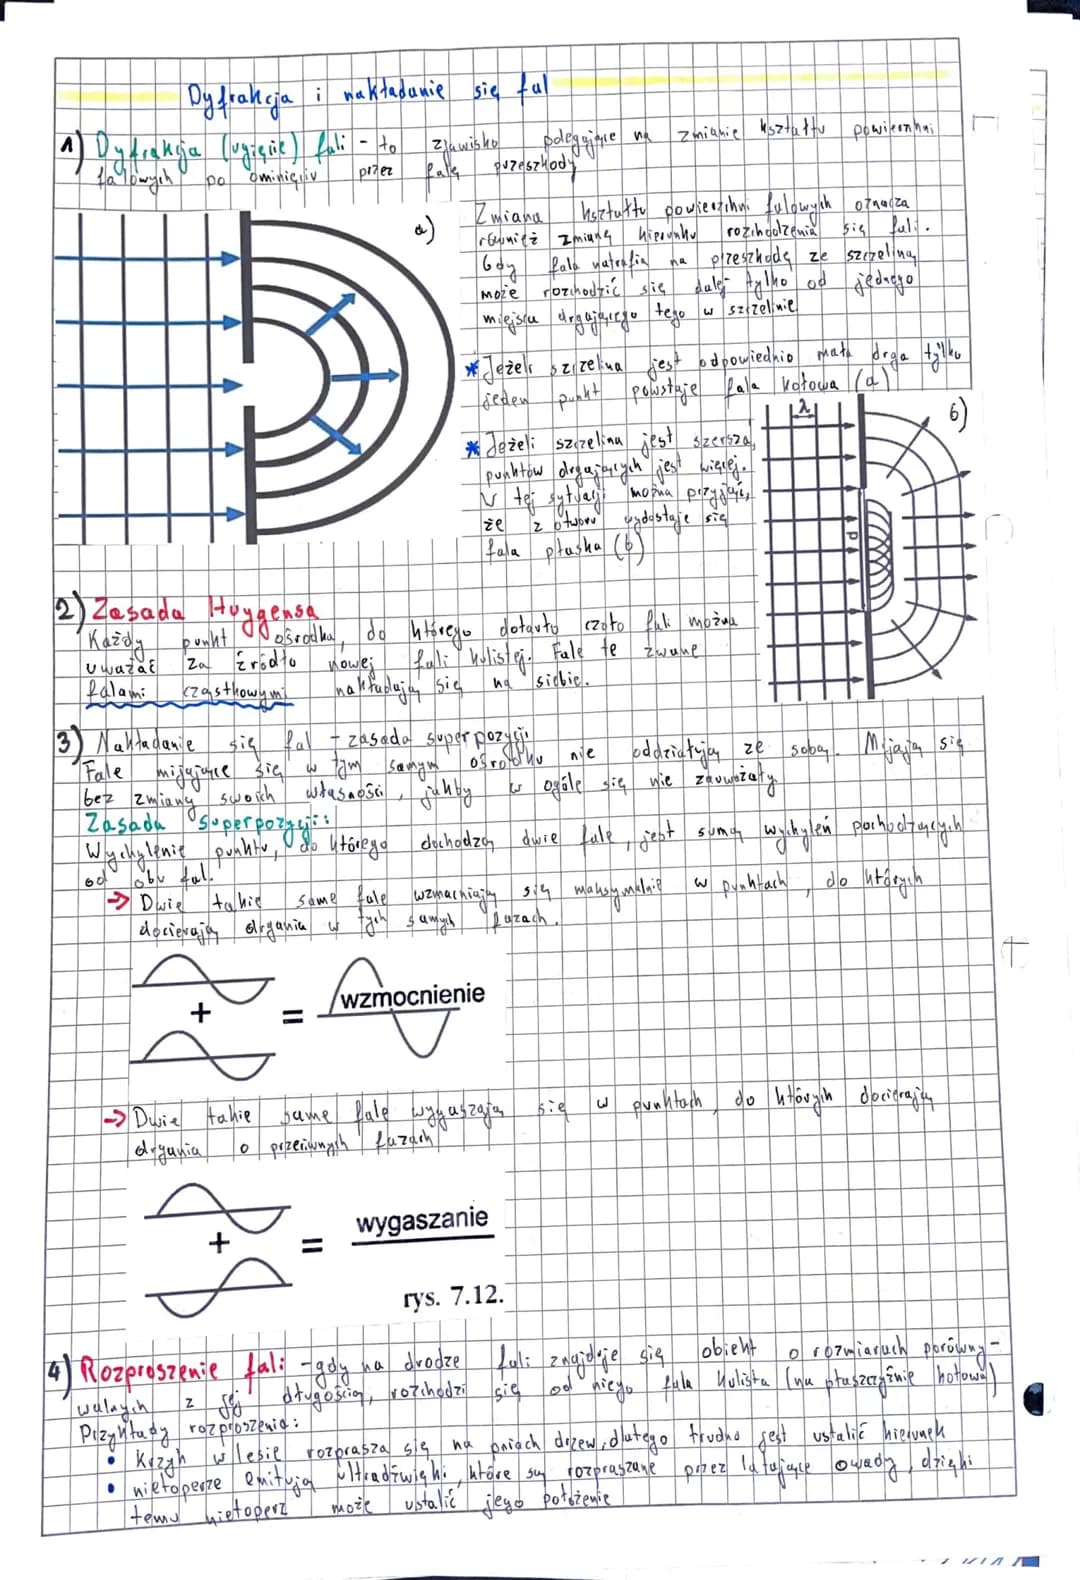 Dyfrakcja i nakładanie się fal
1) Dyfrakcja (ugięcie) fali - to zjawisko polegające na zmianie kształtu powierzchni
falowych po ominięciu przez falę przeszkody
a)
Zmiana kształtu powierzchni falowych oznacza
również zmianę kierunku rozchodzenia się fali.
Gdy fala natrafia na przeszkodę ze szczeliną
może rozchodzić się dalej tylko od jednego
miejsca drgającego tego w szczelinie.
* Jeżeli szczelina jest odpowiednio mała drga tylko
jeden punkt powstaje fala kołowa (a)
* Jeżeli szczelina jest szersza,
punktów drgających jest więcej.
W tej sytuacji można przyjąć,
że z otworu wydostaje się
fala płaska (b)
λ
b)
d
2) Zasada Huygensa
Każdy punkt ośrodka, do którego dotarło czoło fali można
uważać za źródło nowej fali kulistej. Fale te zwane
falami cząstkowymi nakładają się na siebie.
3) Nakładanie się fal - zasada superpozycji
Fale mijające się w tym samym ośrodku nie oddziałują ze sobą. Mijają się
bez zmiany swoich własności, jakby w ogóle się nie zauważały
Zasada superpozycji:
Wychylenie punktu, do którego dochodzą dwie fale, jest sumą wychyleń pochodzących
od obu fal.
→ Dwie takie same fale wzmacniają się maksymalnie w punktach, do których
docierają drgania w tych samych fazach.
+ = wzmocnienie
→ Dwie takie same fale wygaszają się w punktach, do których docierają
drgania o przeciwnych fazach
+ = wygaszanie
rys. 7.12.
4) Rozproszenie fali - gdy na drodze fali znajduje się obiekt o rozmiarach porówny-
walnych z jej długością, rozchodzi się od niego fala kulista (na płaszczyźnie kołowa)
Przykłady rozproszenia:
• Krzyk w lesie rozprasza się na pniach drzew, dlatego trudno jest ustalić kierunek
• nietoperze emitują ultradźwięki, które są rozpraszane przez latające owady, dzięki
temu nietoperz może ustalić jego położenie